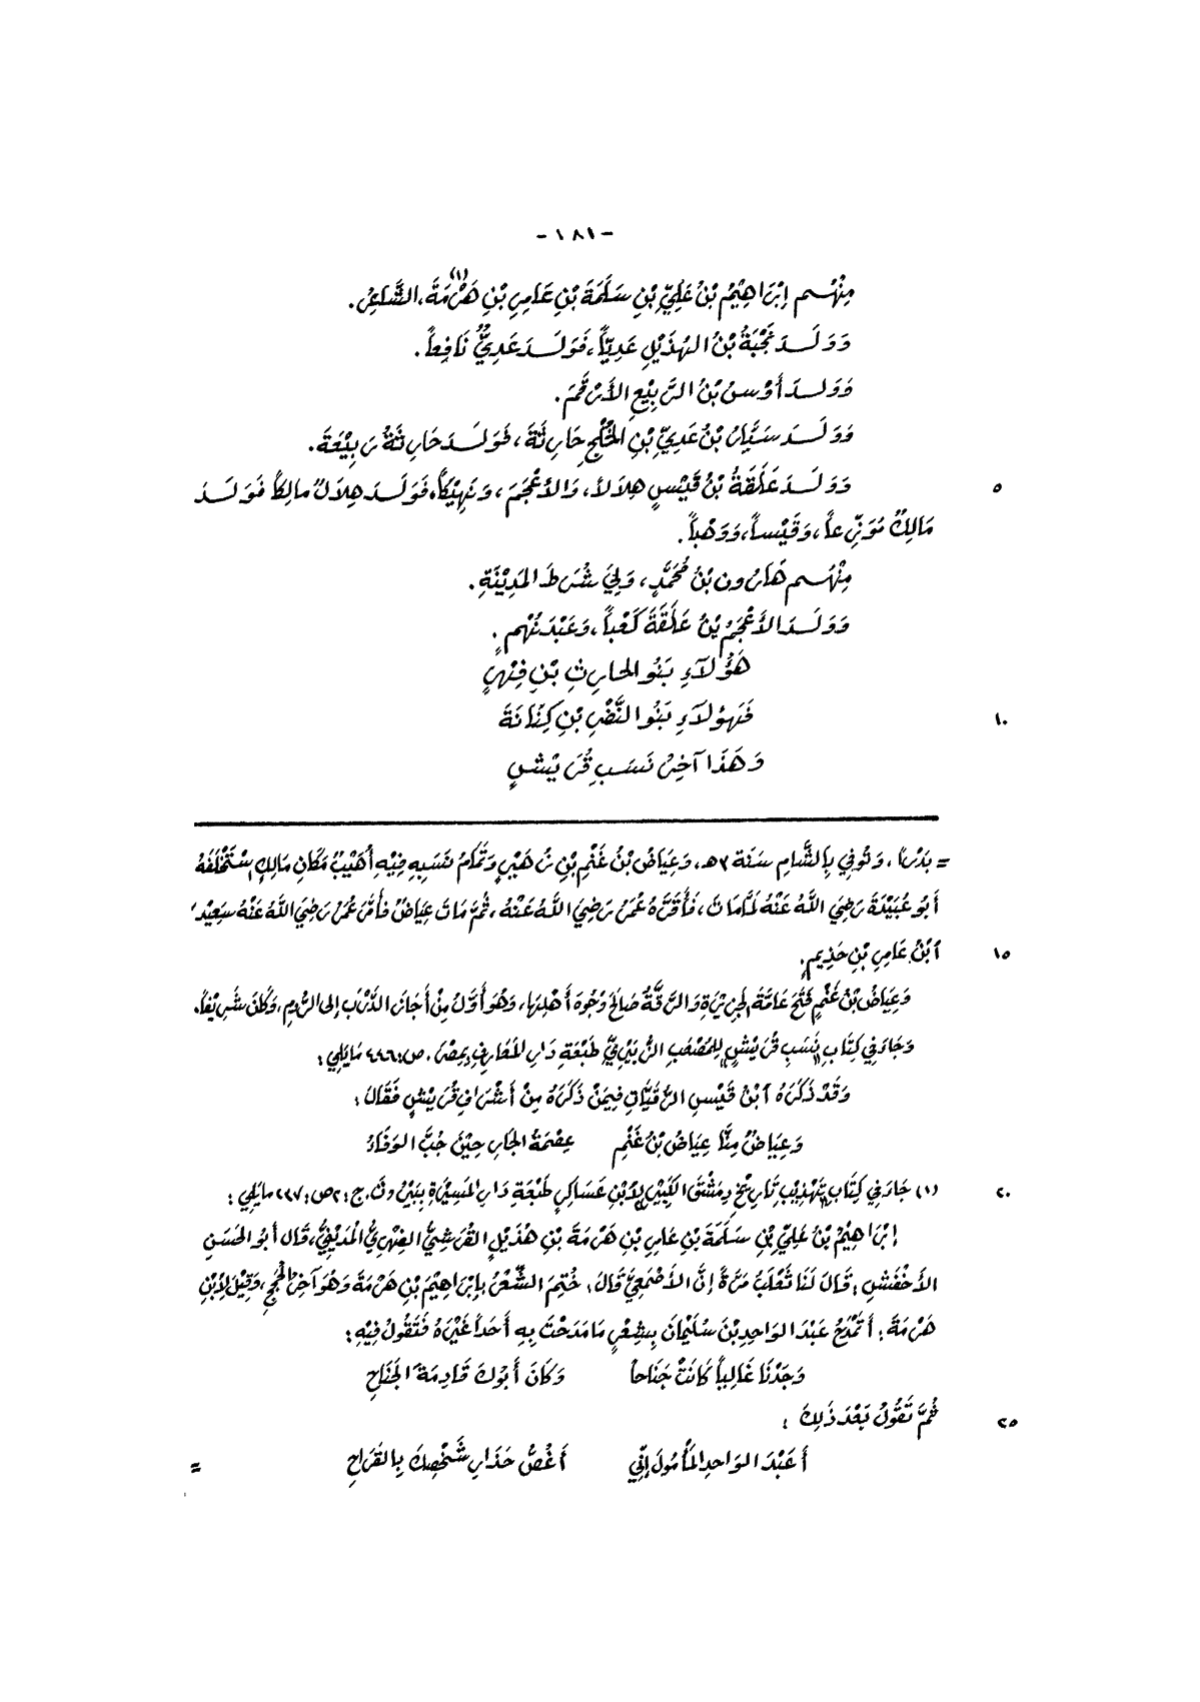 -١٨١-
مِنْهُم إِبْرَاهِيْمُ بْنُ عَلِيِّ بْنِ سَلَمَةَ بْنِ عَامِرِ بْنِ هَرْمَةَ(١)، الشَّاعِرُ.
وَوَلَدَ نَجَبَةُ بْنُ الهُذَيْلِ عَدِيّاً، فَوَلَدَ عَدِيٌّ نَافِعاً.
وَوَلَدَ أَوْسُ بْنُ الرَّبِيْعِ الأَرْقَمَ.
وَوَلَدَ سَيَّارُ بْنُ عَدِيِّ بْنِ الخُلْجِ حَارِثَةَ، فَوَلَدَ حَارِثَةُ رَبِيْعَةَ.
وَوَلَدَ عَلَقَةُ بْنُ قَيْسٍ هِلاَلاً، وَالأَعْجَمَ، وَنَهِيْكاً، فَوَلَدَ هِلاَلٌ مَالِكاً فَوَلَدَ ٥
مَالِكٌ مُوَزِّعاً، وَقَيْساً، وَوَهْباً.
مِنْهُم هَارُون بْنُ مُحَمَّدٍ، وَلِيَ شُرَطَ المَدِيْنَةِ.
وَوَلَدَ الأَعْجَمُ بْنُ عَلَقَةَ كَعْباً، وَعَبْدَ نُهْمٍ.
هَؤُلآءِ بَنُو الحارِثِ بْنِ فِهْرٍ
فَهَؤُلآءِ بَنُوا النَّضْرِ بْنِ كِنَانَةَ ١٠
وَهَذَا آخِرُ نَسَبِ قُرَيْشٍ
= بَدْراً، وَتُوفِيَ بِالشَّامِ سَنَة ٣٠هـ، وَعِيَاضُ بْنُ غَنْمِ بْنِ زُهَيْرٍ وَتَمَامُ نَسَبِهِ فِيْهِ أُهَيْبُ مَكَانَ مَالِكٍ اِسْتَخْلَفَهُ
أَبُو عُبَيْدَةَ رَضِيَ اللَّهُ عَنْهُ لَمَّا مَاتَ، فَأَقَرَّهُ عُمَرُ رَضِيَ اللهُ عَنْهُ، ثُمَّ مَاتَ عِيَاضٌ فَأَمَّرَ عُمَرُ رَضِيَ اللَّهُ عَنْهُ سَعِيْدَ
ٱبْنُ عَامِرِ بْنِ حَذِيمٍ. ١٥
وَعِيَاضُ بْنُ غَنْمٍ فَتَحَ عَامَّةَ الجَزِيْرَةِ وَالرَّقَّةُ صَالَحَ وُجُوهَ أَهْلِهَا، وَهُوَ أَوَّلُ مِنْ أَجَازَ الدَّرْبَ إلى الرُّومِ، وَكَانَ شَرِيْفاً.
وَجَاءَ فِي كِتَابِ "نَسَبِ قُرَيْشٍ" لِلمُصْعَبِ الزُّبَيْرِيِّ طَبْعَةِ دَارِ المَعَارِفِ بِمِصْرَ. ص: ٤٤٦ مَايَلِي:
وَقَدْ ذَكَرَهُ ٱبْنُ قَيْسِ الرُّقَيَّاتِ فِيمَنْ ذَكَرَهُ مِنْ أَشْرَافِ قُرَيْشٍ فَقَالَ:
وَعِيَاضٌ مِنَّا عِيَاضُ بْنُ غَنْمٍ عِصْمَةُ الجَارِ حِيْنَ جُبَّ الوَفَاءُ
(١) جَاءَ فِي كِتَابِ "تَهْذِيْبِ تَارِيْخِ دِمَشْقَ الكَبِيْرِ" لِابْنِ عَسَاكِرَ طَبْعَةِ دَارِ المَسِيْرَةِ بِبَيْرُوتَ. ج: ٢ ص: ٢٣٧ مايَلِي: ٢٠
إِبْرَاهِيْمُ بْنُ عَلِيِّ بْنِ سَلَمَةَ بْنِ عَامِرِ بْنِ هَرْمَةَ بْنِ هُذَيْلٍ القُرَشِيُّ الفِهْرِيُّ المَدِيْنِيُّ، قَال أبُو الحَسَنِ
الأَخْفَشِ: قَالَ لَنَا ثَعْلَبُ مَرَّةً إنَّ الأَصْمَعِيَّ قَالَ: خُتِمَ الشِّعْرُ بِإِبْرَاهِيْمَ بْنِ هَرْمَةَ وَهُوَ آخِرُ الحُجَجِ، وَقِيْلَ لِابْنِ
هَرْمَةَ: أَتَمْدَحُ عَبْدَ الوَاحِدِ بْنَ سُلَيْمَانَ بِشِعْرٍ مَا مَدَحْتَ بِهِ أَحَداً غَيْرَهُ فَتَقُولُ فِيْهِ:
وَجَدْنَا غَالِباً كَانَتْ جَنَاحاً وَكَانَ أَبُوكَ قَادِمَةَ الجَنَاحِ
ثُمَّ تَقُولُ بَعْدَ ذَلِكَ: ٢٥
أَعَبْدَ الوَاحِدِ المَأْمُولَ إِنِّي أَغَصُّ حَذَارِ شَخْصِكَ بِالقَرَاحِ =